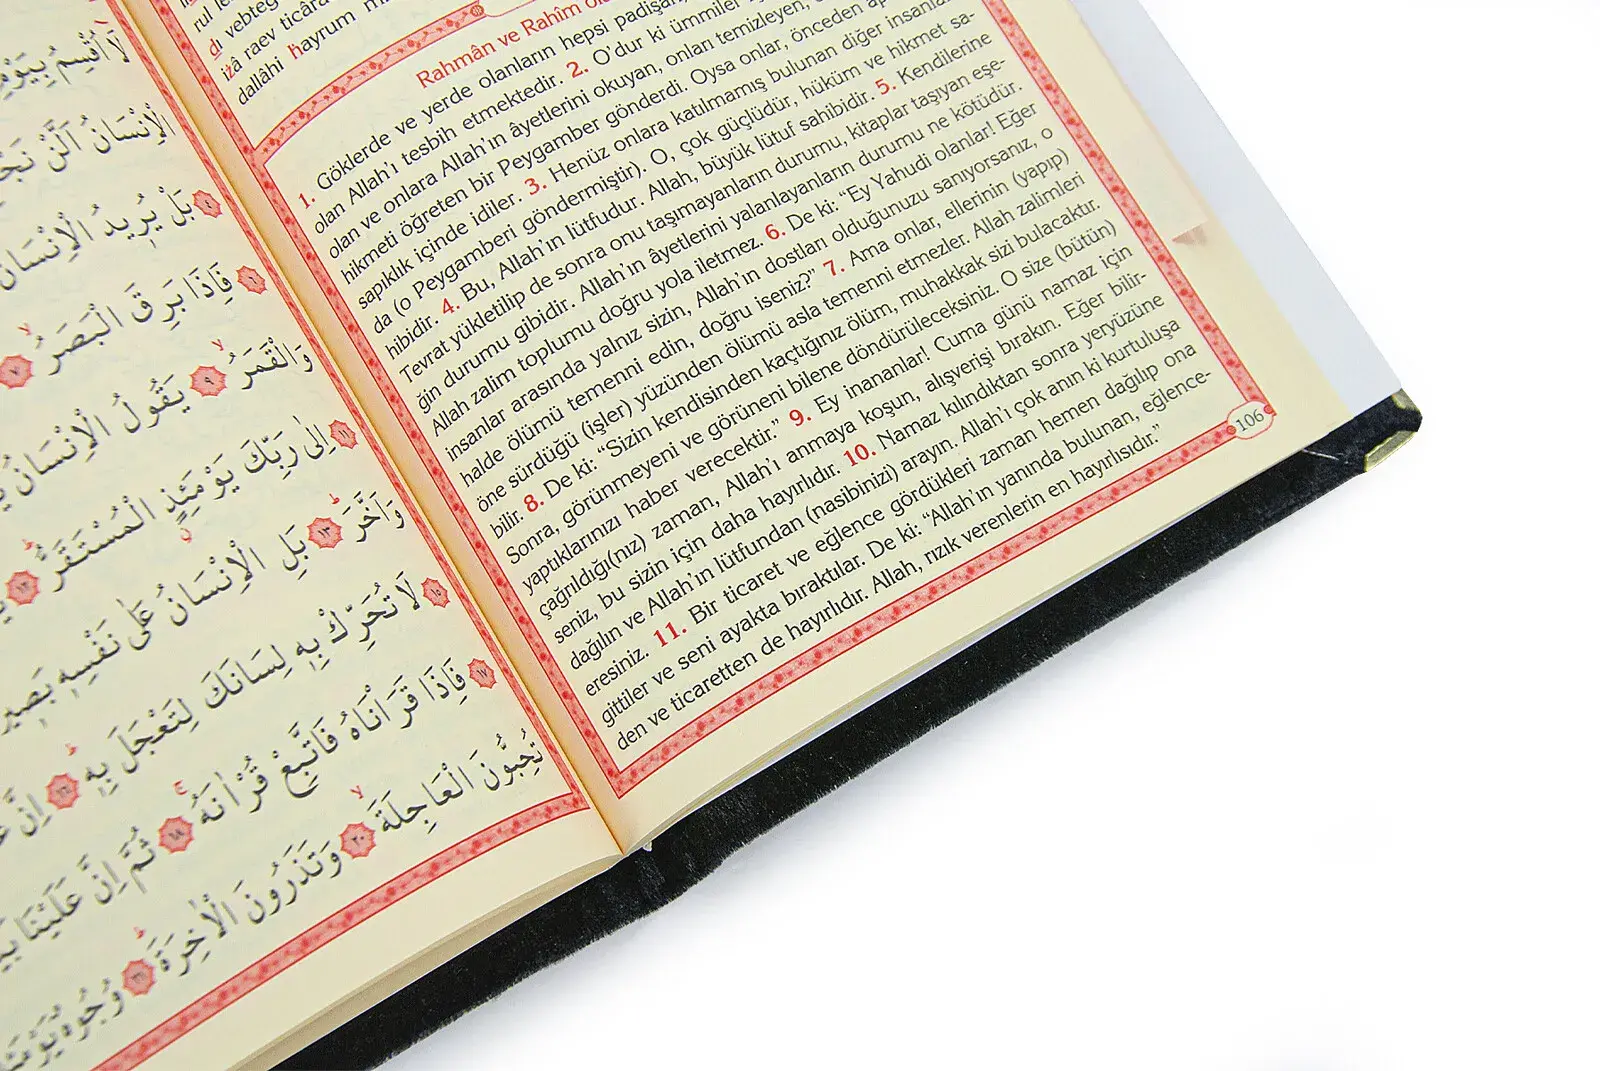 rul
di vebteg
izâ raev ticâra
dallâhi hayrum
Rahmân ve Rahîm
1. Göklerde ve yerde olanların hepsi padişah,
olan Allah'ı tesbih etmektedir. 2. O'dur ki ümmiler
olan ve onlara Allah'ın âyetlerini okuyan, onları temizleyen,
hikmeti öğreten bir Peygamber gönderdi. Oysa onlar, önceden
sapıklık içinde idiler. 3. Henüz onlara katılmamış bulunan diğer insanlar
da (o Peygamberi göndermiştir). O, çok güçlüdür, hüküm ve hikmet sa-
hibidir. 4. Bu, Allah'ın lütfudur. Allah, büyük lütuf sahibidir. 5. Kendilerine
Tevrat yükletilip de sonra onu taşımayanların durumu, kitaplar taşıyan eşe-
ğin durumu gibidir. Allah'ın âyetlerini yalanlayanların durumu ne kötüdür.
Allah zalim toplumu doğru yola iletmez. 6. De ki: "Ey Yahudi olanlar! Eğer
insanlar arasında yalnız sizin, Allah'ın dostları olduğunuzu sanıyorsanız, o
halde ölümü temenni edin, doğru iseniz?" 7. Ama onlar, ellerinin (yapıp)
öne sürdüğü (işler) yüzünden ölümü asla temenni etmezler. Allah zalimleri
bilir. 8. De ki: "Sizin kendisinden kaçtığınız ölüm, muhakkak sizi bulacaktır.
Sonra, görünmeyeni ve görüneni bilene döndürüleceksiniz. O size (bütün)
yaptıklarınızı haber verecektir." 9. Ey inananlar! Cuma günü namaz için
çağrıldığı(nız) zaman, Allah'ı anmaya koşun, alışverişi bırakın. Eğer bilir-
seniz, bu sizin için daha hayırlıdır. 10. Namaz kılındıktan sonra yeryüzüne
dağılın ve Allah'ın lütfundan (nasibinizi) arayın. Allah'ı çok anın ki kurtuluşa
eresiniz. 11. Bir ticaret ve eğlence gördükleri zaman hemen dağılıp ona
gittiler ve seni ayakta bıraktılar. De ki: "Allah'ın yanında bulunan, eğlence-
den ve ticaretten de hayırlıdır. Allah, rızık verenlerin en hayırlısıdır."
106
لَا اُقْسِمُ بِيَوْمِ
الْاِنْسَانُ اَلَّنْ
بَلْ يُرِيدُ الْاِنْسَانُ
﴿٦﴾ فَاِذَا بَرِقَ الْبَصَرُ ﴿٧﴾
وَالْقَمَرُ ﴿٩﴾ يَقُولُ الْاِنْسَانُ
﴿١١﴾ اِلٰى رَبِّكَ يَوْمَئِذٍ الْمُسْتَقَرُّ ﴿١٢﴾
وَاَخَّرَ ﴿١٣﴾ بَلِ الْاِنْسَانُ عَلٰى نَفْسِهٖ بَصٖيرَ
﴿١٥﴾ لَا تُحَرِّكْ بِهٖ لِسَانَكَ لِتَعْجَلَ بِهٖ ﴿١٦﴾ اِنَّ
﴿١٧﴾ فَاِذَا قَرَاْنَاهُ فَاتَّبِعْ قُرْاٰنَهُ ﴿١٨﴾ ثُمَّ اِنَّ عَلَيْنَا
تُحِبُّونَ الْعَاجِلَةَ ﴿٢٠﴾ وَتَذَرُونَ الْاٰخِرَةَ ﴿٢١﴾ وُجُوهٌ